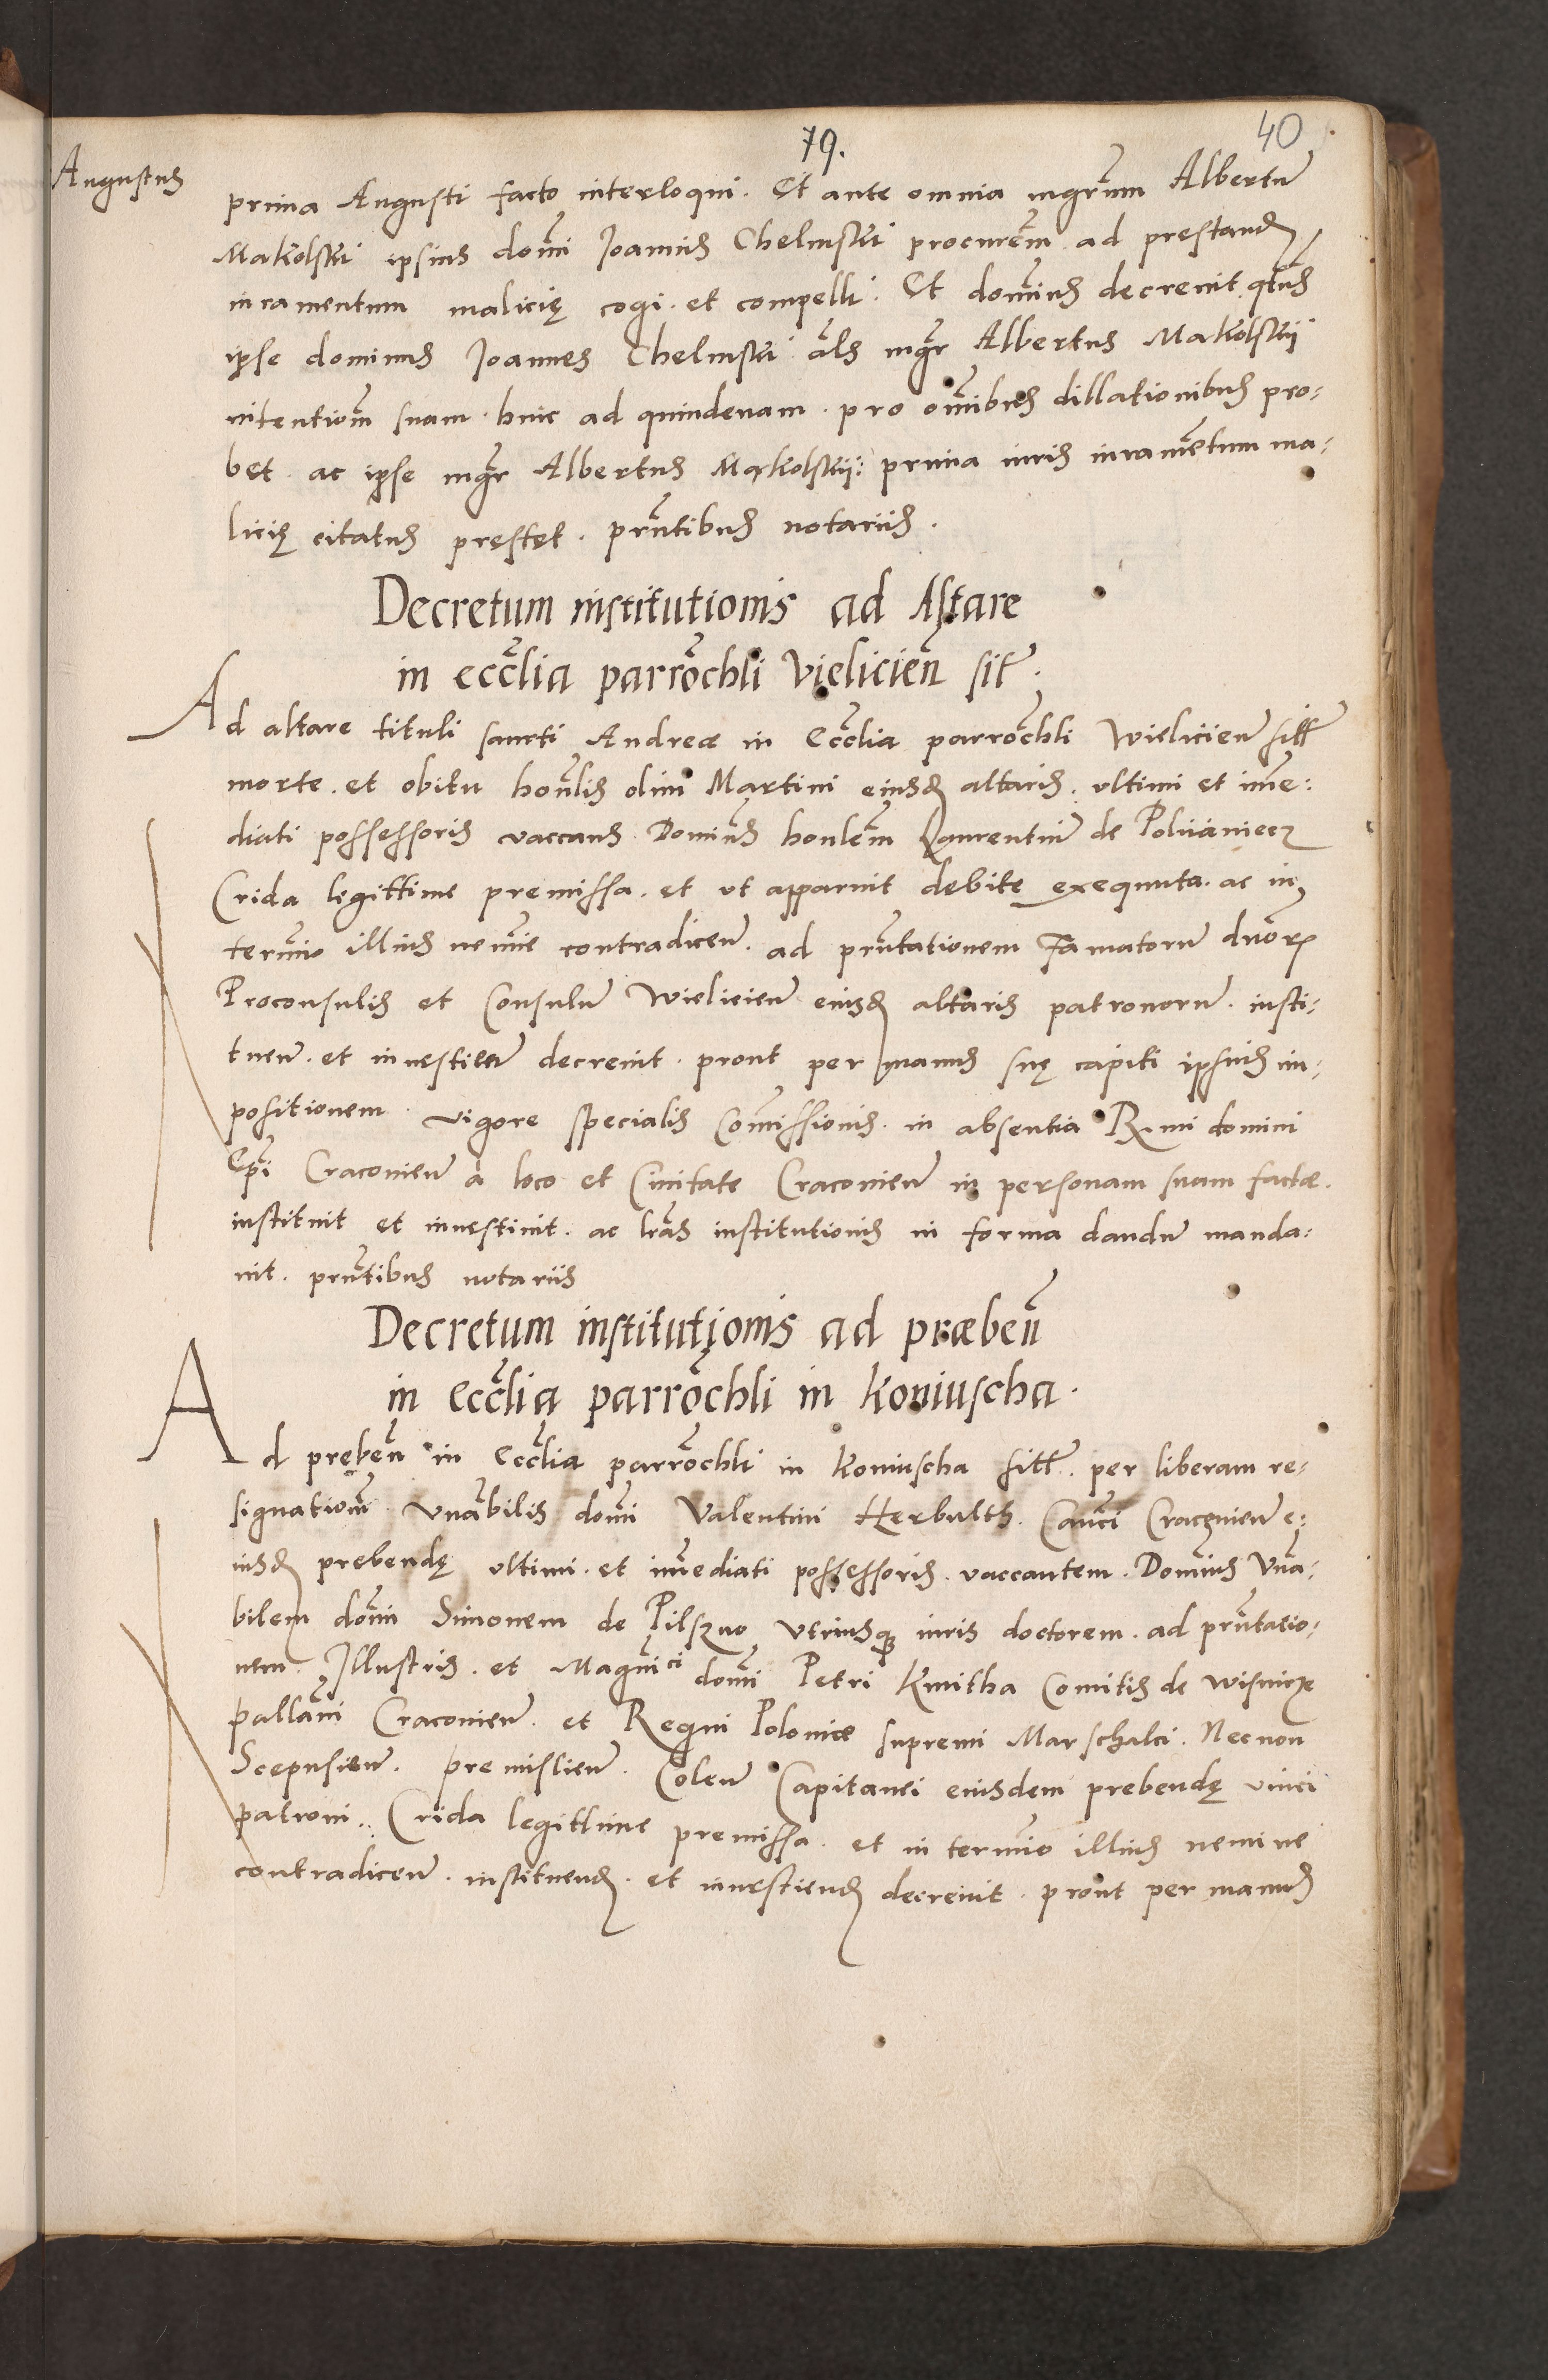 79.
40
Augustus
prima Augusti facto interloqui. Et ante omnia mgrum Albertū
Makolski ipsius domi Joannis Chelmski procurem ad prestand
iuramentum malicię cogi. et compelli. Et dominus decrevit qtus
ipse dominus Joannes Chelmski als mgr Albertus Makolskij
intentiom suam. hinc ad quindenam. pro omibus dillationibus pro-
bet. ac ipse mgr Albertus Makolskij: prima iuris iuramētum ma-
licię citatus prestet. prntibus notariis.
Decretum institutionis ad Altare
in eccclia parrochli Vielicien sit.
Ad altare tituli sancti Andreæ in Ecclia parrochli Wielicien sitt
morte. et obitu honlis olim Martini eiusd altaris. ultimi et ime:
diati possessoris vaccans. Dominus honlem Laurentiū de Polianiecz
Crida legittime premissa. et ut apparuit debite exequuta. ac in
termio illius nemie contradicen. ad prntationem Famatorū dnorum
Proconsulis et Consulū Wielicien eiusd altaris patronorū. insti-
tuen. et investien decrevit. prout per manus suę capiti ipsius im-
positionem. vigore specialis Comissionis. in absentia R.mi domini
Epi Cracovien a loco et Civitate Cracovien in personam suam factæ.
instituit et investivit. ac lras institutionis in forma dandū manda-
vit. prntibus notariis
Decretum institutionis ad præben
in Ecclia parrochli in Koniuscha.
Ad preben in Ecclia parrochli in Koniuscha sitt. per liberam re-
signatiom Vnabilis domi Valentini Herbulth. Canci Cracovien e:
iusd prebendę ultimi. et imediati possessoris. vaccantem. Dominus Vna-
bilem domi Simonem de Pilszno Utriusq iuris doctorem. ad prntatio-
nem. Illustris. et Magnici domi Petri Kmitha Comitis de Wisnicze
pallani Cracovien. et Regni Poloniæ supremi Marschalci. Necnon
Scepusien. premislien. Colen Capitanei eiusdem prebendę unici
patroni. Crida legittime premissa. et in termio illius nemine
contradicen. instituend. et investiend decrevit. prout per manus